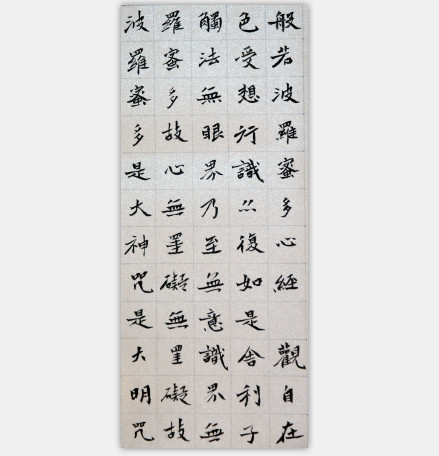 般若波羅蜜多心經 觀自在
色受想行識亦復如是舍利子
觸法無眼界乃至無意識界無
羅蜜多故心無罣礙無罣礙故
波羅蜜多是大神咒是大明咒